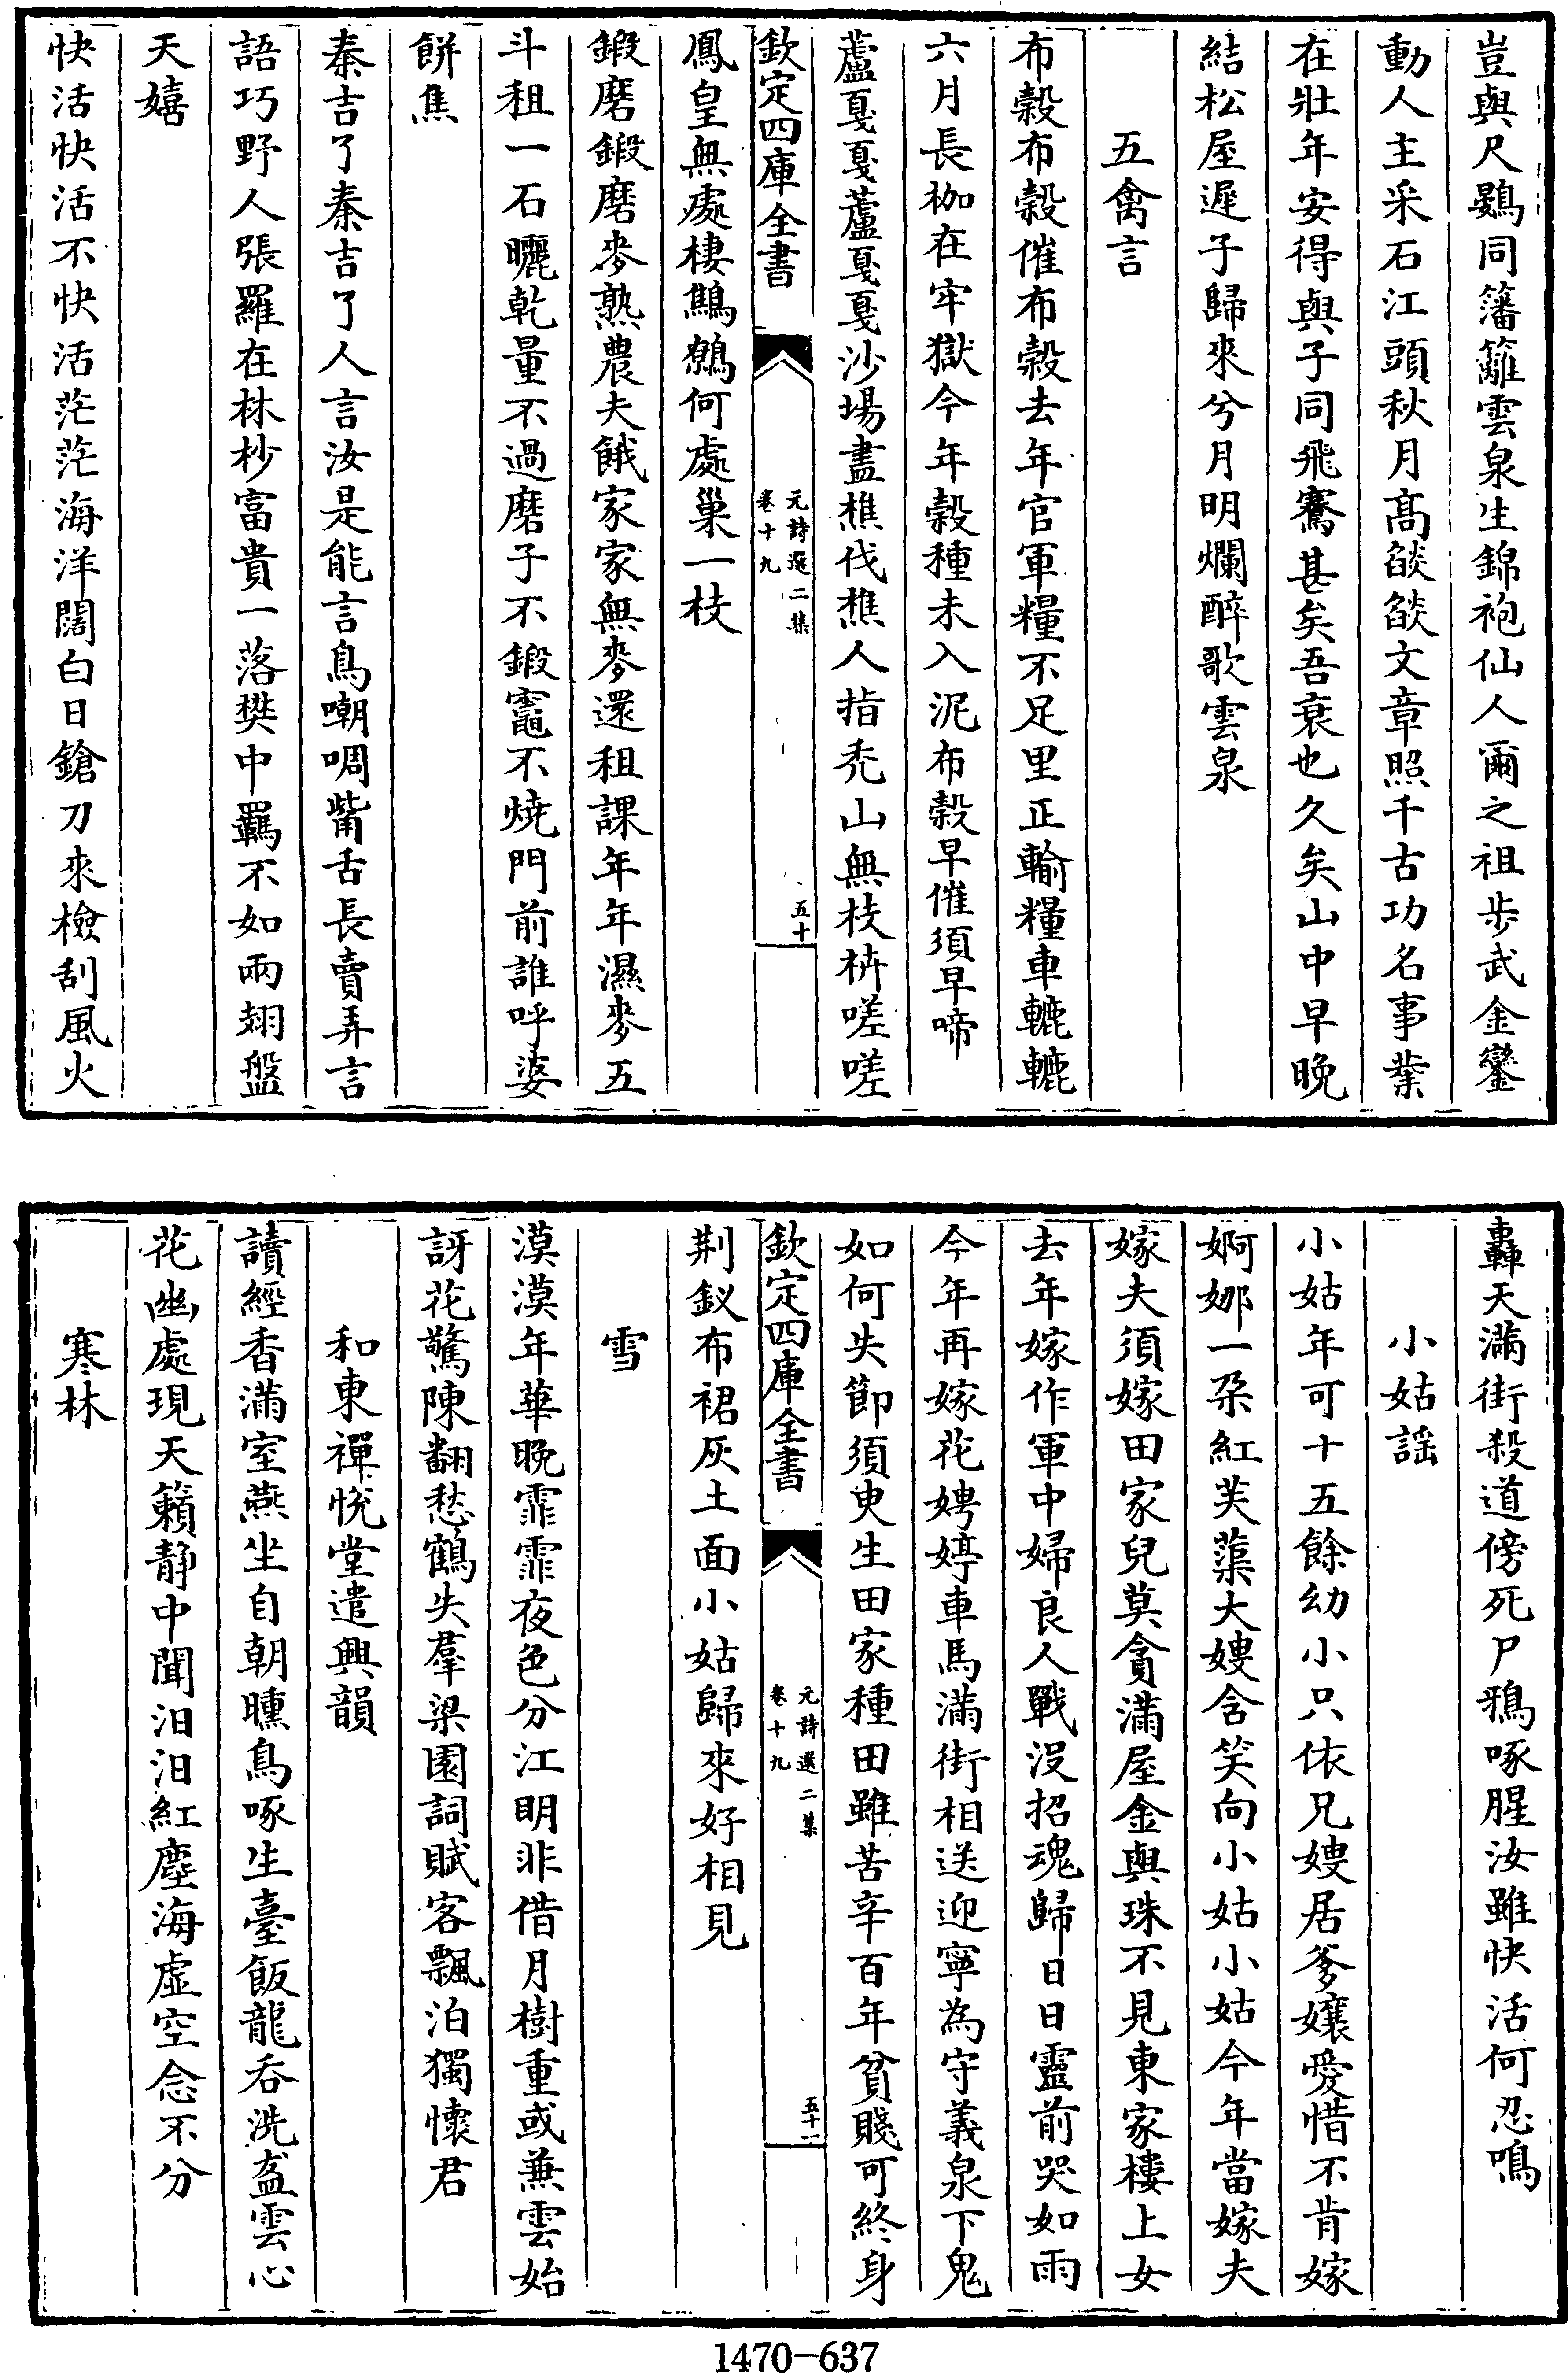 豈與尺鷃同籓籬雲泉生錦袍仙人爾之祖歩武金鑾
動人主采石江頭秋月髙燄燄文章照千古功名事業
在壯年安得與子同飛鶱甚矣吾衰也久矣山中早晚
結松屋遲子歸來兮月明爛醉歌雲泉
五禽言
布榖布榖催布榖去年官軍糧不足里正輸糧車轆轆
六月長枷在牢獄今年榖種未入泥布榖早催須早啼
蘆戛戛蘆戛戛沙場盡樵伐樵人指禿山無枝枿嗟嗟
鳳皇無處棲鷦鷯何處巢一枝
欽定四庫全書
元詩選二集
卷十九
五十
鍛磨鍛磨麥熟農夫餓家家無麥還租課年年濕麥五
斗租一石曬乾量不過磨子不鍛竈不焼門前誰呼婆
餅焦
秦吉了秦吉了人言汝是能言鳥嘲啁觜舌長賣弄言
語巧野人張羅在林杪富貴一落樊中羈不如兩翅盤
天嬉
快活快活不快活茫茫海洋闊白日鎗刀來檢刮風火
轟天滿街殺道傍死尸鴉啄腥汝雖快活何忍鳴
小姑謡
小姑年可十五餘幼小只依兄嫂居爹孃愛惜不肯嫁
婀娜一朶紅芙蕖大嫂含笑向小姑小姑今年當嫁夫
嫁夫須嫁田家兒莫貪滿屋金與珠不見東家樓上女
去年嫁作軍中婦良人戰沒招魂歸日日靈前哭如雨
今年再嫁花娉婷車馬滿街相送迎寧為守義泉下鬼
如何失節須臾生田家種田雖苦辛百年貧賤可終身
欽定四庫全書
元詩選二集
卷十九
五十一
荆釵布裙灰土面小姑歸來好相見
雪
漠漠年華晚霏霏夜色分江明非借月樹重或兼雲始
訝花驚陳翻愁鶴失羣梁園詞賦客飄泊獨懷君
和東禪悅堂遣興韻
讀經香滿室燕坐自朝曛鳥啄生臺飯龍吞洗盋雲心
花幽處現天籟静中聞汩汩紅塵海虛空念不分
寒林
1470-637